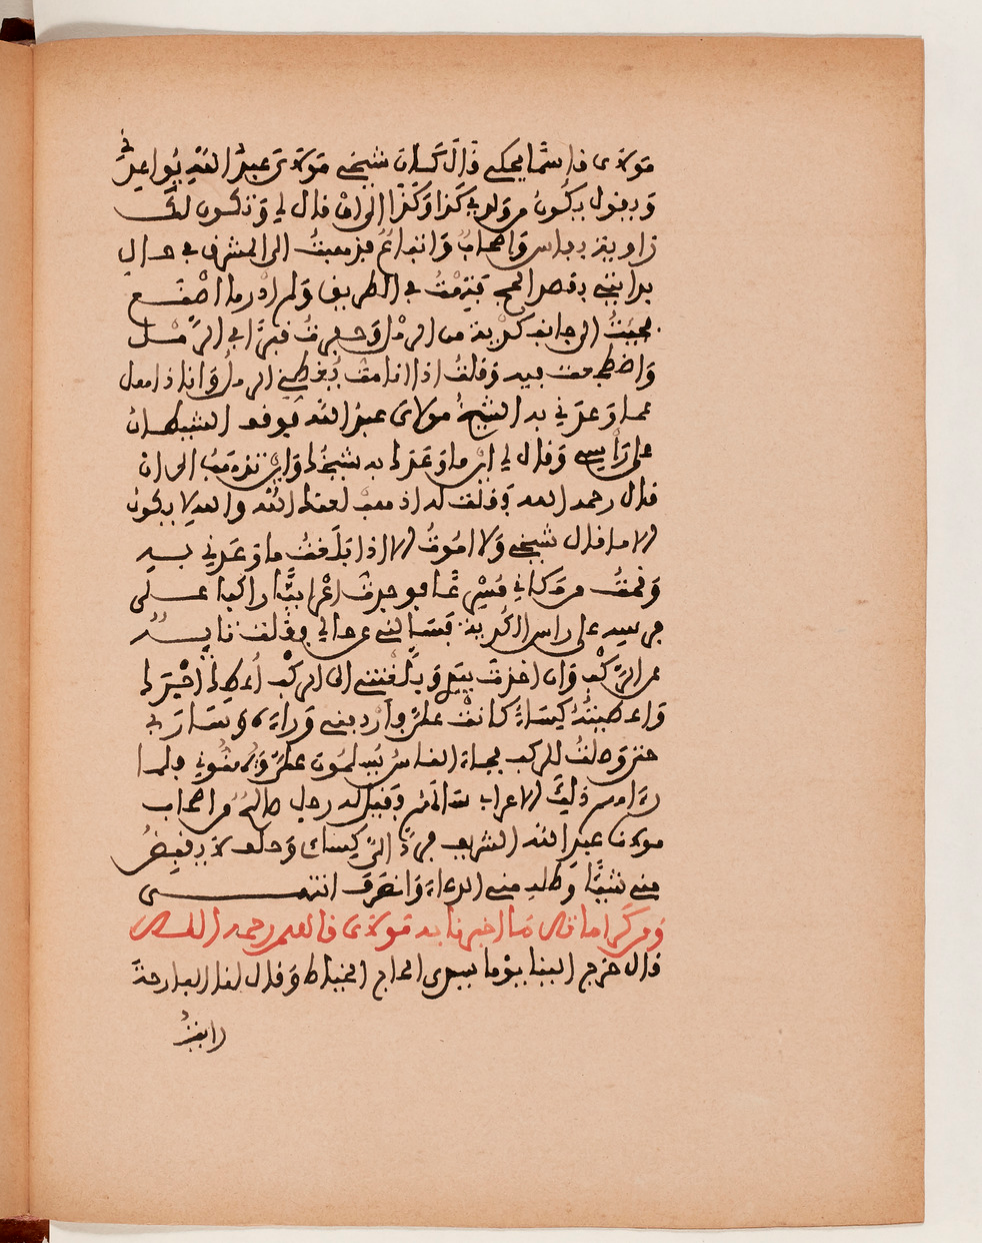 مولاي قاسما يحكي قال كان شيخي مولاي عبد الله يواعدني
ويقول يكون من ولدي كذا وكذا الى ان قال لي وتكون لك
زاوية بفاس واصحاب واتباع فذهبت الى المشرق في حال
بدايتي بقصد الحج فتهت في الطريق ولم ادر ما اصنع
فجئت الى جانب كدية من الرمل وحفرت قبرا في الرمل
واضطجعت فيه وقلت اذا انا مت يغطيني الرمل وانا اذ افعل
مما وعدني به الشيخ مولاي عبد الله فوقف الشيطان
على راسي وقال لي اين ما وعدك به شيخك واين تذهب الى ان
قال رحمه الله وقلت له اذهب لعنك الله والله لا يكون
الا ما قال شيخي ولا اموت الا اذا بلغت ما وعدني به
وقمت من مكاني مسرعا فوجدت اعرابيا راكبا على
فرسه على راس الكدية فسالني عن حالي وقلت تايه
عن الركب وان اخذت بيدي وبلغتني الى الركب اعطك اخيرك
واعطيته كساء كانت علي واردفني وراءه وسار بي
حتى وصلت للركب فجاء الناس يسلمون علي ويهنوني فلما
رءا من ذلك الاعراب سالهم وقيل له رجل صالح من اصحاب
مولانا عبد الله الشريف فرد الي كساي وحلف لا يقبض
مني شيئا وطلب مني الدعاء وانصرف انتهى
ومن كراماته ما اخبرنا به مولاي قاسم رحمه الله
قال خرج الينا يوما سيدي الحاج الخياط وقال لنا البارحة
رايت